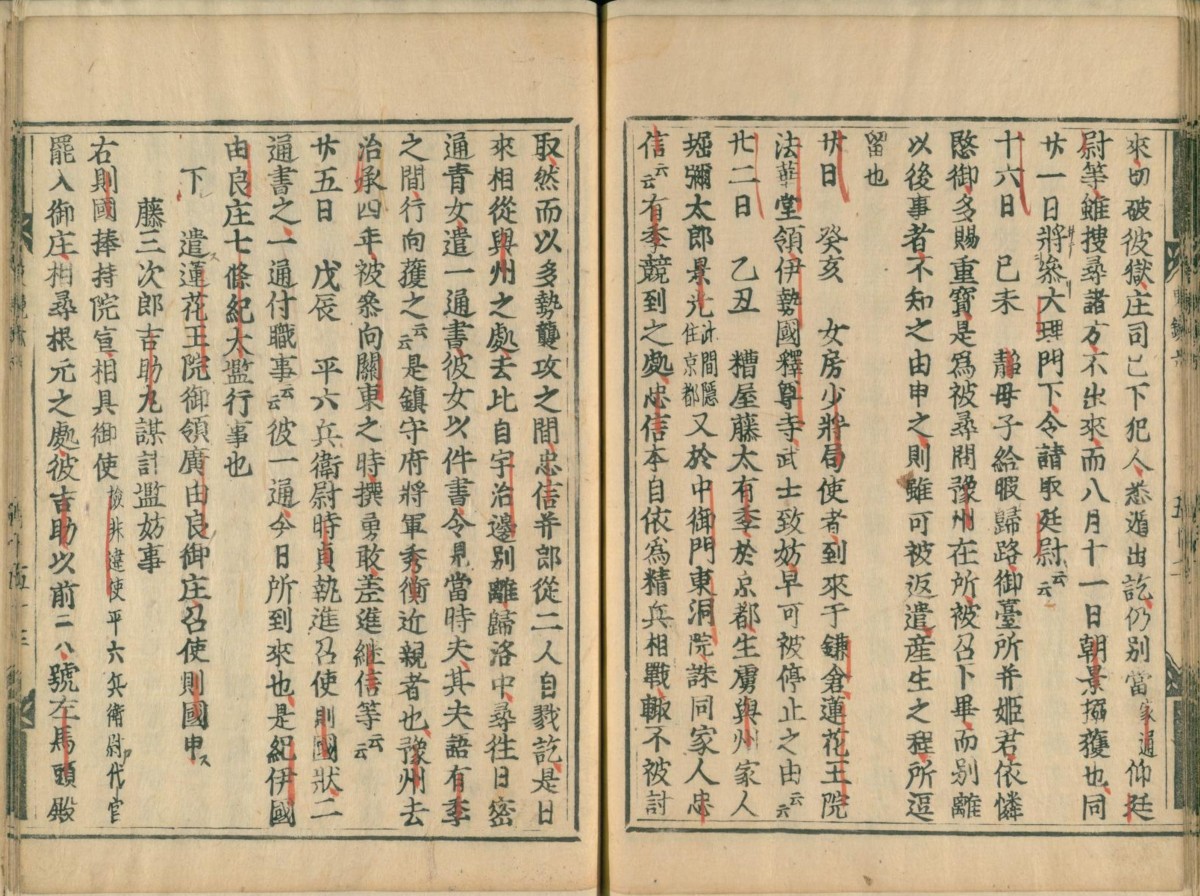 來切破彼獄、庄司已下犯人、悉遁出訖、仍別當家通仰廷
尉等、雖搜尋諸方、不出來、而八月十一日、朝景搦獲也、同
廿一日、將參大理門下、令請取廷尉云云
十六日 己未 靜母子給暇歸路、御臺所并姬君依憐
愍御、多賜重寶、是爲被尋問豫州在所、被召下畢、而別離
以後事者、不知之由申之、則雖可被返遣、產生之程所逗
留也
廿日 癸亥 女房少將局使者到來于鎌倉、蓮花王院
法華堂領、伊勢國釋尊寺、武士致妨、早可被停止之由云云
廿二日 乙丑 糟屋藤太有季於京都生虜與州家人
堀彌太郎景光此間隱住京都又於中御門東洞院、誅同家人忠
信云云有季競到之處、忠信本自依爲精兵相戰、輙不被討
取、然而以多勢襲攻之間、忠信并郎從二人自戮訖、是日
來相從與州之處、去比自宇治邊別離、歸洛中、尋往日密
通青女、遣一通書、彼女以件書、令見當時夫、其夫語有季
之間、行向獲之云云是鎮守府將軍秀衡近親者也、豫州去
治承四年被參向關東之時、撰勇敢差進繼信等云云
廿五日 戊辰 平六兵衛尉時貞、執進召使則國狀二
通書之、一通付職事云云彼一通、今日所到來也、是紀伊國
由良庄七條紀太濫行事也
下 遣蓮花王院御領廣由良御庄召使則國申ス
藤三次郎吉助丸謀計濫妨事
右則國捧持院宣、相具御使檢非違使平六兵衛尉代官
罷入御庄、相尋根元之處、彼吉助以前二八、號左馬頭殿